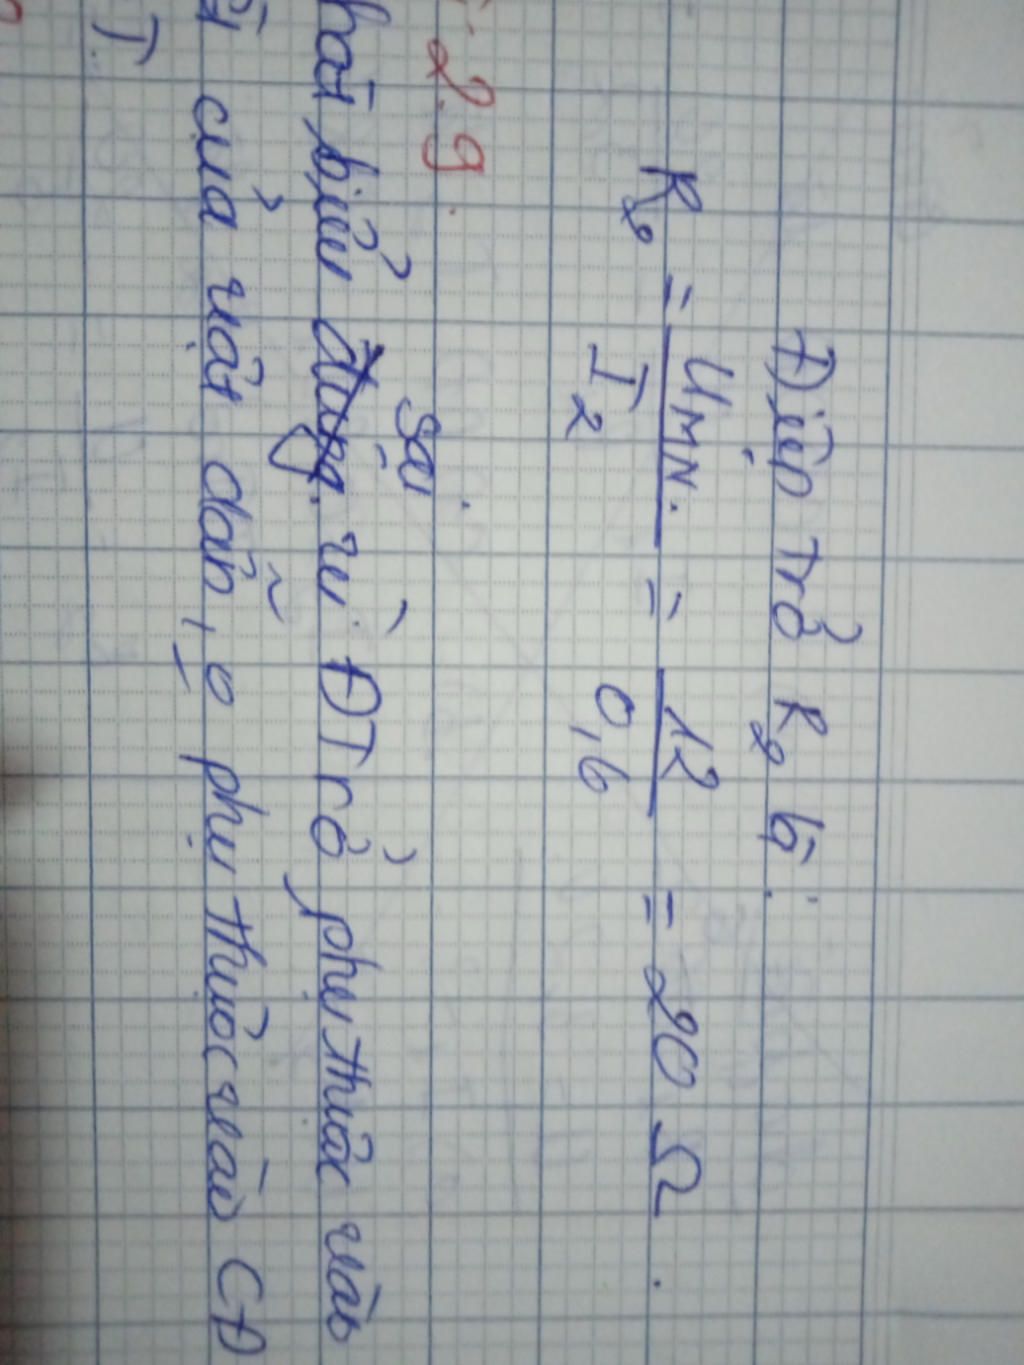 Điện trở R₂ là:
R₂ = U_MN / I₂ = 12 / 0,6 = 20 Ω.
2.9.
sai.
phát biểu đúng. vì ĐTrở phụ thuộc vào
của vật dẫn, o phụ thuộc vào CĐ
I.